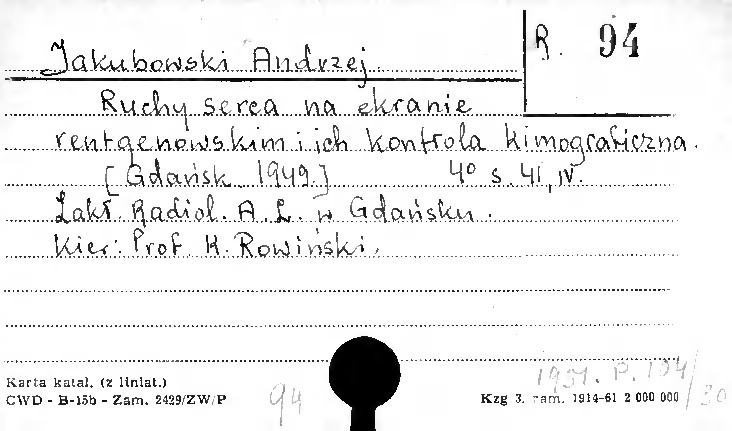 Jakubowski Andrzej.
R. 94
Ruchy serca na ekranie
rentgenowskim i ich kontrola kimograficzna.
[Gdańsk 1949.] 4° s. 41, IV.
Zakł. Radiol. A. L. w Gdańsku.
Kier: Prof. K. Rowiński.
1951. P. 104/30
Karta katal. (z liniat.)
CWD - B-15b - Zam. 2429/ZW/P
94
Kzg 3. zam. 1914-61 2 000 000